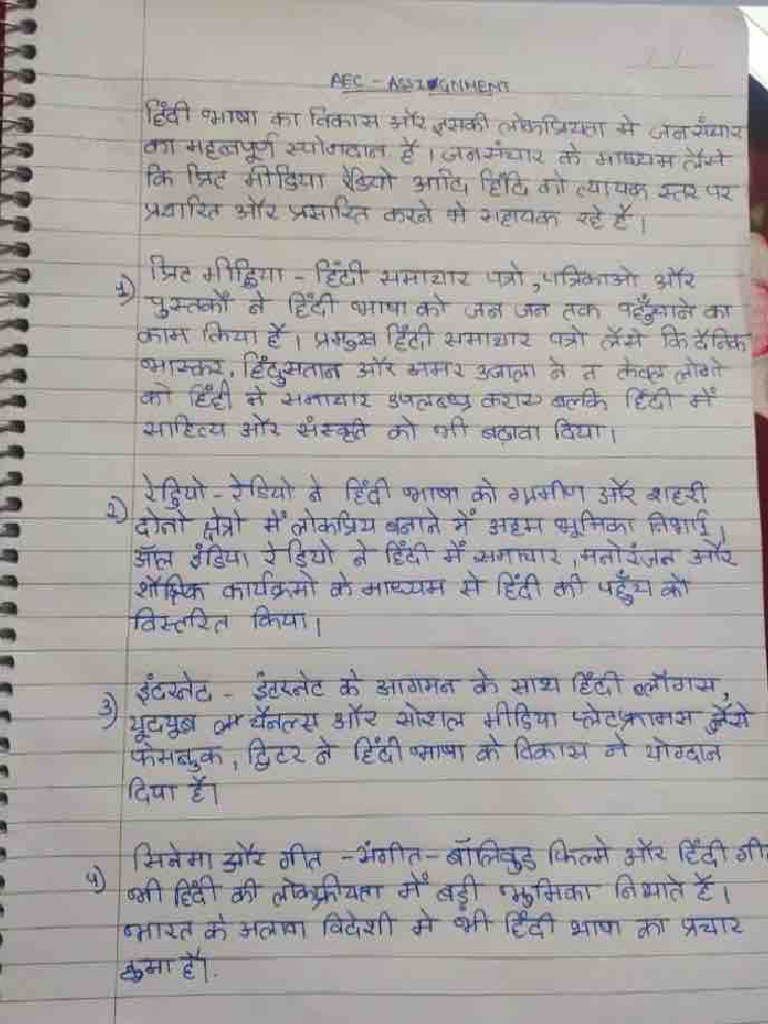 AEC - ASSIGNMENT
हिंदी भाषा का विकास और इसकी लोकप्रियता मे जनसंचार
का महत्वपूर्ण योगदान है। जनसंचार के माध्यम जैसे
कि प्रिंट मीडिया रेडियो आदि हिंदि को व्यापक स्तर पर
प्रचारित और प्रसारित करने मे सहायक रहे है।
1) प्रिंट मीडिया - हिंदी समाचार पत्रो, पत्रिकाओ और
पुस्तकों ने हिंदी भाषा को जन जन तक पहुँचाने का
काम किया है। प्रमुख हिंदी समाचार पत्रो जैसे कि दैनिक
भास्कर, हिंदुसतान और अमर उजाला ने न केवल लोगो
को हिंदी ने समाचार उपलब्ध कराए बल्कि हिंदी में
साहित्य और संस्कृती को भी बढ़ावा दिया।
2) रेडियो - रेडियो ने हिंदी भाषा को ग्रामीण और शहरी
दोनो क्षेत्रो में लोकप्रिय बनाने में अहम भूमिका निभाई,
ऑल इंडिया रेडियो ने हिंदी में समाचार, मनोरंजन और
शैक्षिक कार्यक्रमो के माध्यम से हिंदी की पहुँच को
विस्तरित किया।
3) इंटरनेट - इंटरनेट के आगमन के साथ हिंदी ब्लौगस,
यूटयूब चैनल्स और सोशल मीडिया प्लेटफ्रामस जैसे
फेसबुक, ट्विटर ने हिंदी भाषा के विकास मे योगदान
दिया है।
4) सिनेमा और गीत - संगीत - बॉलिवुड फिल्मे और हिंदी गी
भी हिंदी की लोकप्रीयता में बड़ी भूमिका निभाते है।
भारत के अलावा विदेशी मे भी हिंदी भाषा का प्रचार
हुआ है।